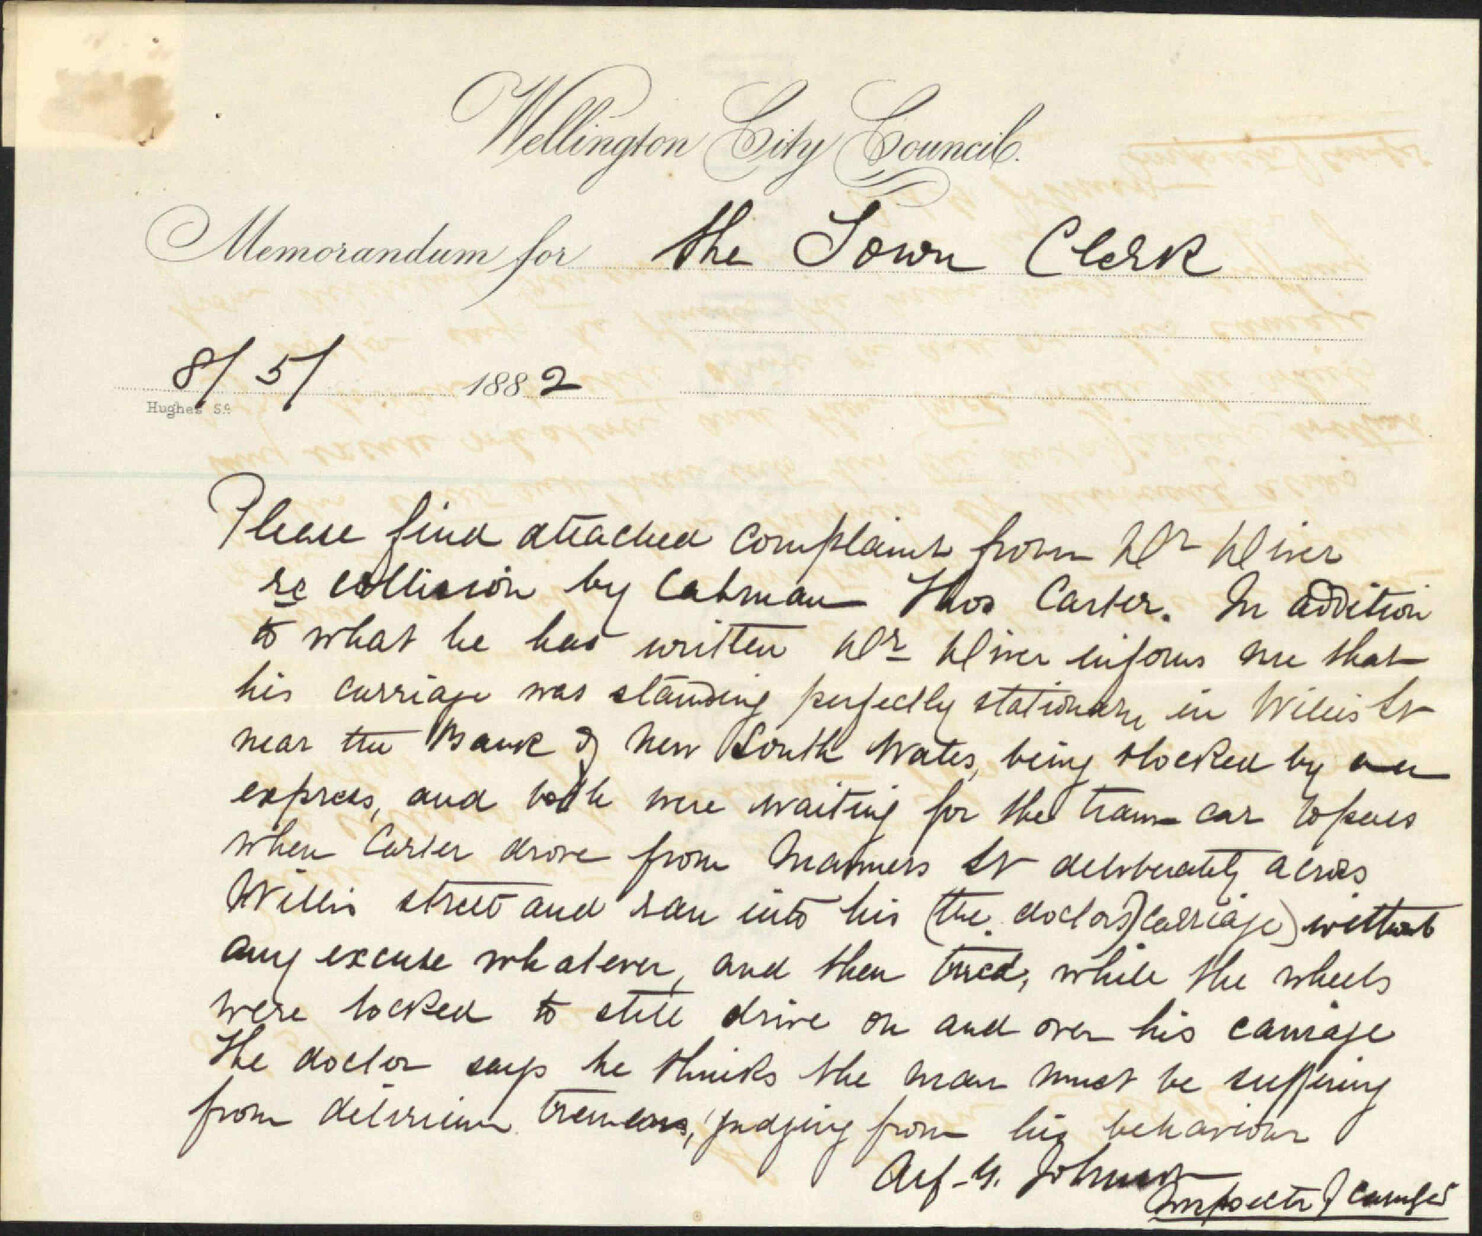 Wellington City Council.
Memorandum for the Town Clerk
8/5/ 1882
Hughes Sc.
Please find attached complaint from Dr Diver
re collision by Cabman Thos Carter. In addition
to what he has written Dr Diver informs me that
his carriage was standing perfectly stationary in Willis St
near the Bank of New South Wales, being blocked by an
express, and both were waiting for the tram car to pass
when Carter drove from Manners St deliberately across
Willis street and ran into his (the doctors) carriage) without
any excuse whatever, and then tried, while the wheels
were locked to still drive on and over his carriage
The doctor says he thinks the man must be suffering
from delirium tremens, judging from his behaviour
Alf. G. Johnson
Inspector of Carriages